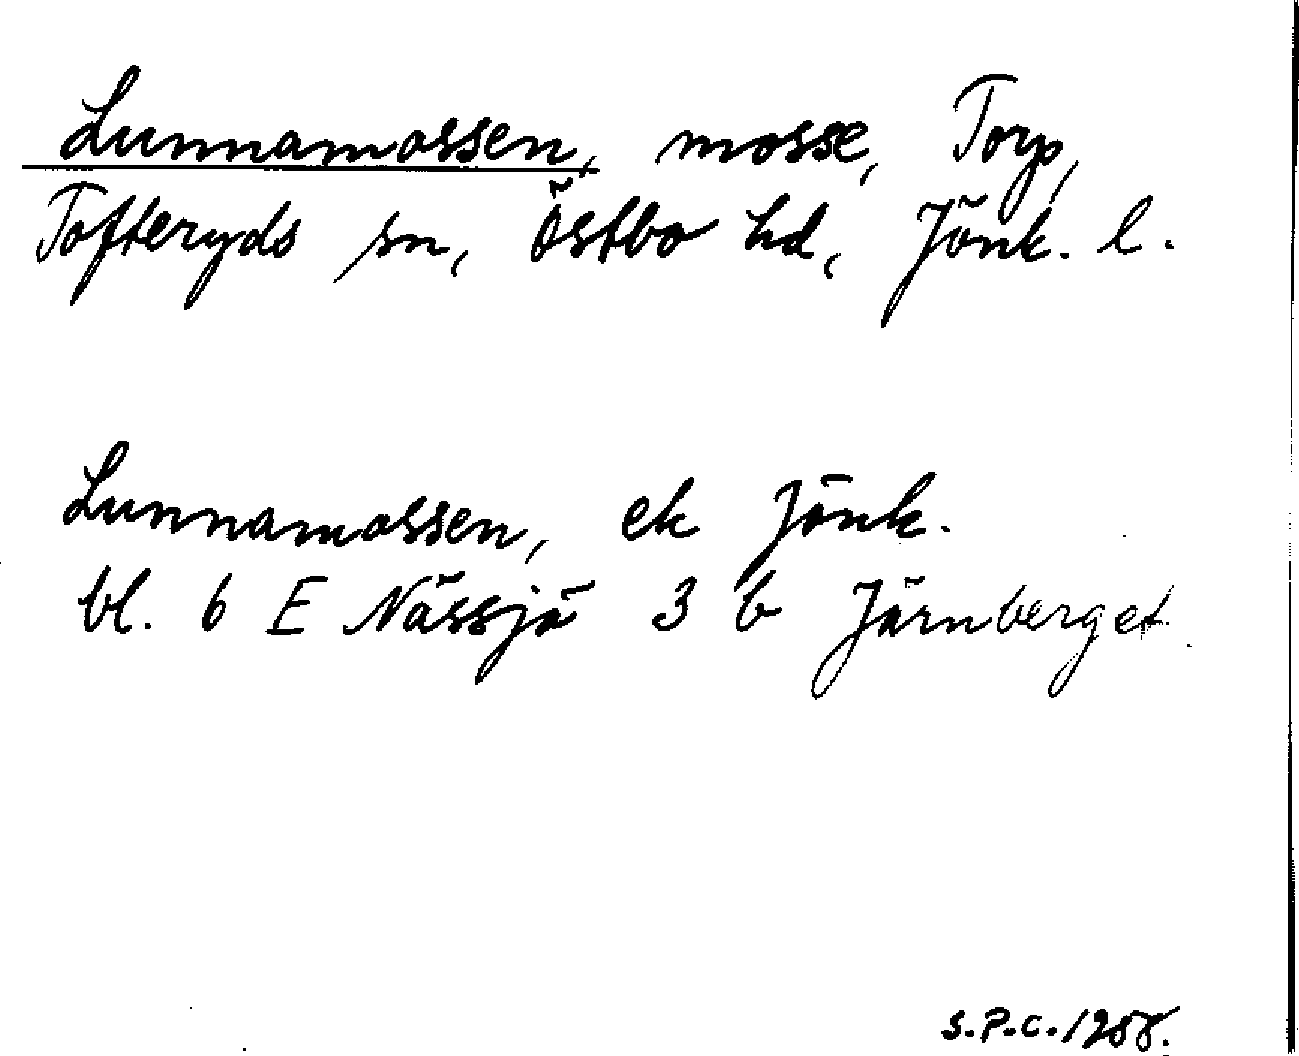 Lunnamossen, mosse, Torp,
Tofteryds sn, Östbo hd, Jönk. l.
Lunnamossen, ek Jönk.
bl. 6 E Nässjö 3 b Järnberget
S.P.C. 1958.